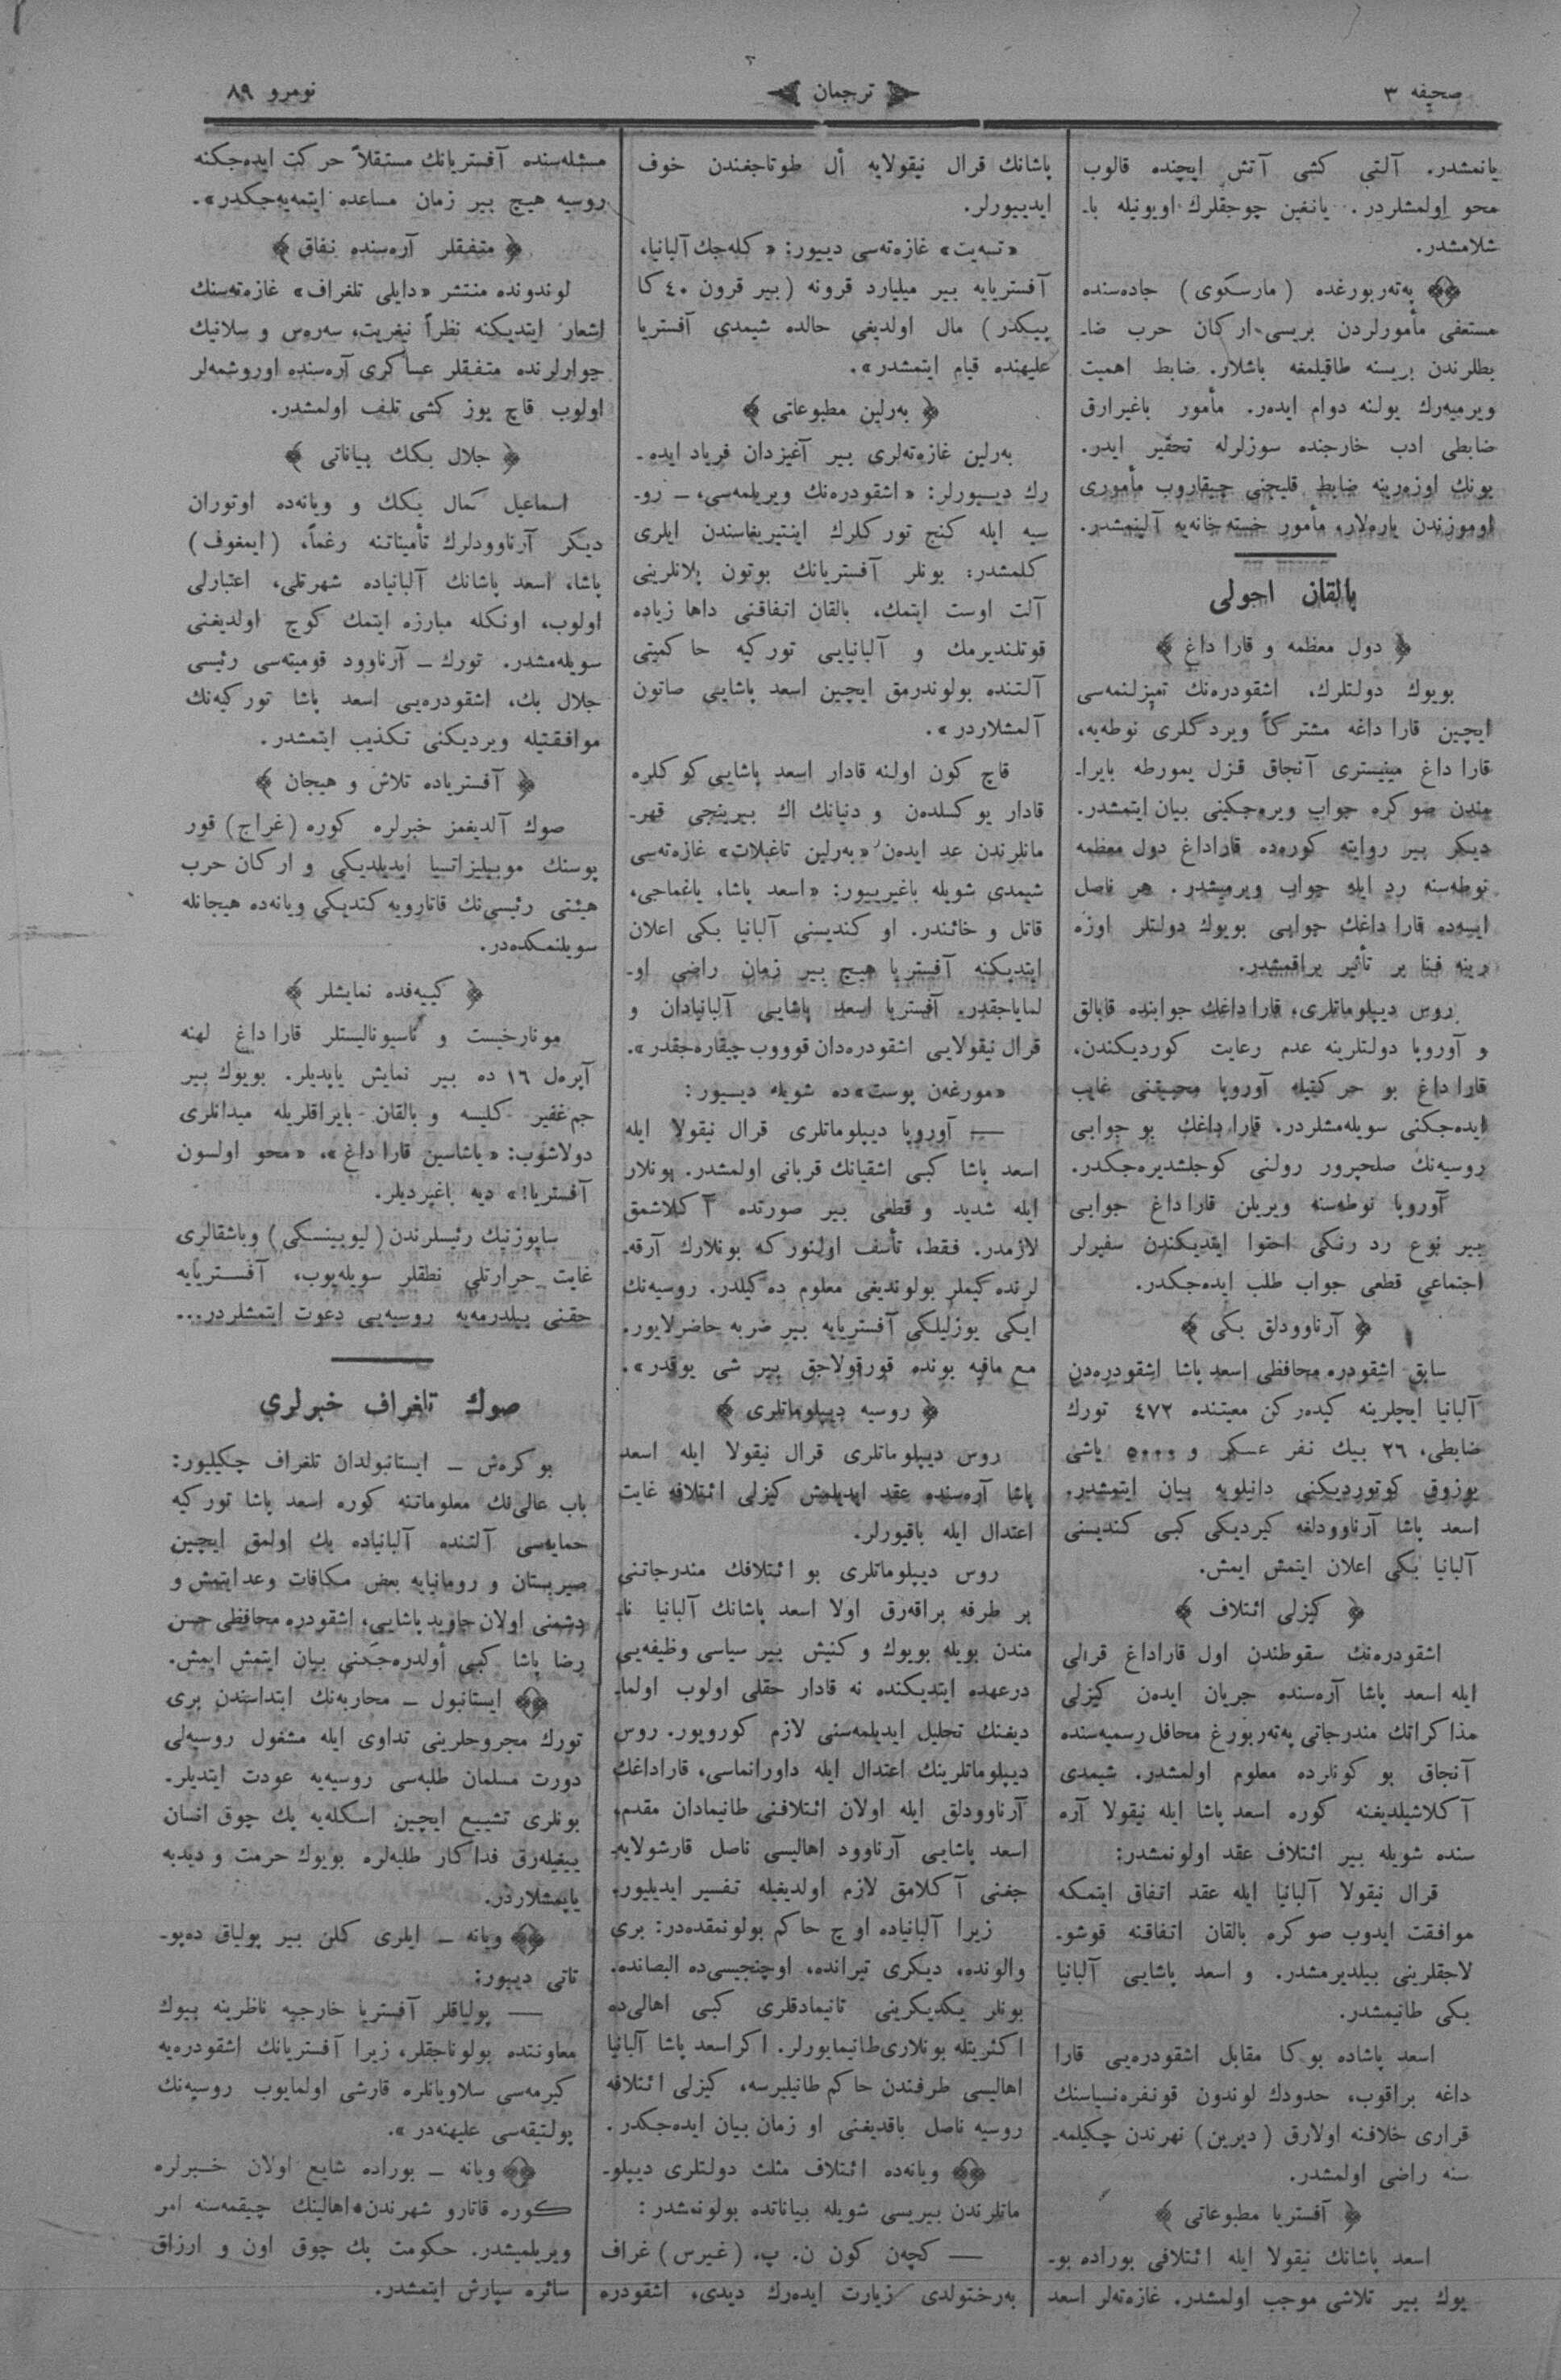 صحیفه ۳
ترجمان
نومرو ۸۹
یانمشدر. آلتی كشی آتش ایچنده قالوب
محو اولمشلردر. یانغین چوجقلرك اویونیله با-
شلامشدر.
پەتەربورغده (مارسكوی) جادەسنده
مستعفی مأمورلردن بریسی اركان حرب ضا-
بطلرندن بریسنه طاقیلمغه باشلار. ضابط اهمیت
ویرمیەرك یولنه دوام ایدەر. مأمور باغیرارق
ضابطی ادب خارجنده سوزلرله تحقیر ایدر.
بونك اوزەرینه ضابط قلیجنی چیقاروب مأموری
اوموزندن یارەلار، مأمور خسته‌خانه‌یه آلینمشدر.
بالقان احوالی
﴿ دول معظمه و قارا داغ ﴾
بویوك دولتلرك، اشقودرەنك تمیزلنمەسی
ایچین قارا داغه مشتركاً ویردكلری نوطەیه،
قارا داغ مینیستری آنجاق قزل یمورطه بایرا-
مندن صوكره جواب ویرەجكینی بیان ایتمشدر.
دیكر بیر روایته كورەده قاراداغ دول معظمه
نوطەسنه رد ایله جواب ویرمیشدر. هر ناصل
ایسەده قارا داغك جوابی بویوك دولتلر اوزە
رینه فنا بر تأثیر براقمشدر.
روس دیپلوماتلری، قارا داغك جوابنده قابالق
و آوروپا دولتلرینه عدم رعایت كوردیكندن،
قارا داغ بو حركتیله آوروپا محبتنی غایب
ایدەجكنی سویلەمشلردر. قارا داغك بو جوابی
روسیەنك صلحپرور رولنی كوجلشدیرەجكدر.
آوروپا نوطەسنه ویریلن قارا داغ جوابی
بیر نوع رد رنكی احتوا ایتدیكندن سفیرلر
اجتماعی قطعی جواب طلب ایدەجكدر.
﴿ آرناوودلق بكی ﴾
سابق اشقودره محافظی اسعد پاشا اشقودرەدن
آلبانیا ایچلرینه كیدەركن معیتنده ٤٧٢ تورك
ضابطی، ٢٦ بیك نفر عسكر و ٥٠٠٠ باشی
بوزوق كوتوردیكنی دانیلویه بیان ایتمشدر.
اسعد پاشا آرناوودلغه كیردیكی كبی كندیسنی
آلبانیا بكی اعلان ایتمش ایمش.
﴿ كیزلی ائتلاف ﴾
اشقودرەنك سقوطندن اول قاراداغ قرالی
ایله اسعد پاشا آرەسنده جریان ایدەن كیزلی
مذاكراتك مندرجاتی پەتەربورغ محافل رسمیەسنده
آنجاق بو كونلرده معلوم اولمشدر. شیمدی
آكلاشیلدیغنه كوره اسعد پاشا ایله نیقولا آرە
سنده شویله بیر ائتلاف عقد اولونمشدر:
قرال نیقولا آلبانیا ایله عقد اتفاق ایتمكه
موافقت ایدوب صوكره بالقان اتفاقنه قوشو-
لاجقلرینی بیلدیرمشدر. و اسعد پاشایی آلبانیا
بكی طانیمشدر.
اسعد پاشاده بوكا مقابل اشقودرەیی قارا
داغه براقوب، حدودك لوندون قونفرەنسیاسنك
قراری خلافنه اولارق (دیرین) نهرندن چكیلمە-
سنه راضی اولمشدر.
﴿ آفستریا مطبوعاتی ﴾
اسعد پاشانك نیقولا ایله ائتلافی بوراده بو-
یوك بیر تلاشی موجب اولمشدر. غازەتەلر اسعد
پاشانك قرال نیقولایه أل طوتاجغندن خوف
ایدییورلر.
«تسەیت» غازەتەسی دییور: «كله‌جك آلبانیا،
آفستریایه بیر میلیارد قرونه (بیر قرون ٤٠ كا
پیكدر) مال اولدیغی حالده شیمدی آفستریا
علیهنده قیام ایتمشدر».
﴿ بەرلین مطبوعاتی ﴾
بەرلین غازەتەلری بیر آغیزدان فریاد ایدە-
رك دیـیورلر: «اشقودرەنك ویریلمەسی، ــ رو-
سیه ایله كنج توركلرك اینتیریغاسندن ایلری
كلمشدر: بونلر آفستریانك بوتون پلانلرینی
آلت اوست ایتمك، بالقان اتفاقنی داها زیاده
قوتلندیرمك و آلبانیایی توركیه حاكمیتی
آلتنده بولوندرمق ایچین اسعد پاشایی صاتون
آلمشلاردر».
قاچ كون اولنه قادار اسعد پاشایی كوكلره
قادار یوكسلدەن و دنیانك اك بیرینجی قهر-
مانلرندن عد ایدەن «بەرلین تاغبلات» غازەتەسی
شیمدی شویله باغیرییور: «اسعد پاشا، یاغماجی،
قاتل و خائندر. او كندیسنی آلبانیا بكی اعلان
ایتدیكنه آفستریا هیچ بیر زمان راضی او-
لمایاجقدر. آفستریا اسعد پاشایی آلبانیادان و
قرال نیقولایی اشقودرەدان قوووب چیقارەجقدر».
«مورغەن پوست»ده شویله دیـیور:
— آوروپا دیپلوماتلری قرال نیقولا ایله
اسعد پاشا كبی اشقیانك قربانی اولمشدر. بونلار
ایله شدید و قطعی بیر صورتده آكلاشمق
لازمدر. فقط، تأسف اولنوركه بونلارك آرقە-
لرنده كیملر بولوندیغی معلوم دەكیلدر. روسیەنك
ایكی یوزلیلكی آفستریایه بیر ضربه حاضرلایور.
مع مافیه بوندە قورقولاجق بیر شی یوقدر».
﴿ روسیه دیپلوماتلری ﴾
روس دیپلوماتلری قرال نیقولا ایله اسعد
پاشا آرەسنده عقد ایدیلمش كیزلی ائتلافه غایت
اعتدال ایله باقیورلر.
روس دیپلوماتلری بو ائتلافك مندرجاتنی
بر طرفه براقەرق اولا اسعد پاشانك آلبانیا نا-
مندن بویله بویوك و كنیش بیر سیاسی وظیفەیی
درعهده ایتدیكنده نه قادار حقلی اولوب اولما-
دیغنك تحلیل ایدیلمەسنی لازم كورویور. روس
دیپلوماتلرینك اعتدال ایله داورانماسی، قاراداغك
آرناوودلق ایله اولان ائتلافنی طانیمادان مقدم،
اسعد پاشایی آرناوود اهالیسی ناصل قارشولایە-
جغنی آكلامق لازم اولدیغیله تفسیر ایدیلیور.
زیرا آلبانیاده اوچ حاكم بولونمقدەدر: بری
والونده، دیكری تیرانده، اوچنجیسی‌ده البصانده.
بونلر یكدیكرینی تانیمادقلری كبی اهالی‌ده
اكثریتله بونلاری طانیمایورلر. اكر اسعد پاشا آلبانیا
اهالیسی طرفندن حاكم طانیلیرسه، كیزلی ائتلافه
روسیه ناصل باقدیغنی او زمان بیان ایدەجكدر.
ویانەده ائتلاف مثلث دولتلری دیپلو-
ماتلرندن بیریسی شویله بیاناتده بولونمشدر:
— كچەن كون ن. پ. (غیرس) غراف
بەرختولدی زیارت ایدەرك دیدی، اشقودره
مسئلەسنده آفستریانك مستقلاً حركت ایدەجكنه
روسیه هیچ بیر زمان مساعده ایتمەیەجكدر».
﴿ متفقلر آرەسنده نفاق ﴾
لوندونده منتشر «دایلی تلغراف» غازەتەسنك
اشعار ایتدیكنه نظراً نیغریت، سەرەس و سلانیك
جوارلرنده متفقلر عساكری آرەسنده اوروشمەلر
اولوب قاچ یوز كشی تلف اولمشدر.
﴿ جلال بكك بیاناتی ﴾
اسماعیل كمال بكك و ویانەده اوتوران
دیكر آرناوودلرك تأمیناتنه رغماً، (ایمغوف)
پاشا، اسعد پاشانك آلبانیاده شهرتلی، اعتبارلی
اولوب، اونكله مبارزه ایتمك كوچ اولدیغنی
سویلەمشدر. تورك ــ آرناوود قومیتەسی رئیسی
جلال بك، اشقودرەیی اسعد پاشا توركیەنك
موافقتیله ویردیكنی تكذیب ایتمشدر.
﴿ آفستریاده تلاش و هیجان ﴾
صوك آلدیغمز خبرلره كوره (غراج) قور
پوسنك موبیلیزاتسیا ایدیلدیكی و اركان حرب
هیئتی رئیسی‌نك قاتارویه كتدیكی ویانەده هیجانله
سویلنمكدەدر.
﴿ كییەفده نمایشلر ﴾
مونارخیست و ناسیونالیستلر قارا داغ لهنه
آپرەل ١٦ ده بیر نمایش یاپدیلر. بویوك بیر
جم غفیر كلیسه و بالقان بایراقلریله میدانلری
دولاشوب: «یاشاسین قارا داغ»، «محو اولسون
آفستریا!» دیه باغیردیلر.
سایوزنیك رئیسلرندن (لیوبینسكی) وباشقالری
غایت حرارتلی نطقلر سویلەیوب، آفستریایه
حقنی بیلدرمەیه روسیەیی دعوت ایتمشلردر...
صوك تلغراف خبرلری
بوكرەش ــ ایستانبولدان تلغراف چكیلیور:
باب عالی‌نك معلوماتنه كوره اسعد پاشا توركیه
حمایەسی آلتنده آلبانیاده بك اولمق ایچین
صیربستان و رومانیایه بعض مكافات وعد ایتمش و
دشمنی اولان جاوید پاشایی، اشقودره محافظی حسن
رضا پاشا كبی أولدرەجكنی بیان ایتمش ایمش.
ایستانبول ــ محاربەنك ابتداسندن بری
تورك مجروحلرینی تداوی ایله مشغول روسیەلی
دورت مسلمان طلبەسی روسیەیه عودت ایتدیلر.
بونلری تشییع ایچین اسكلەیه پك چوق انسان
ییغیلەرق فداكار طلبەلره بویوك حرمت و دبدبه
یاپمشلاردر.
ویانه ــ ایلری كلن بیر پولیاق دەپو-
تاتی دییور:
— پولیاقلر آفستریا خارجیه ناظرینه بیوك
معاونتده بولوناجقلر، زیرا آفستریانك اشقودرەیه
كیرمەسی سلاویانلره قارشی اولمایوب روسیەنك
پولتیقەسی علیهنەدر».
ویانه ــ بوراده شایع اولان خبرلره
كوره قاتارو شهرندن اهالینك چیقمەسنه امر
ویریلمیشدر. حكومت پك چوق اون و ارزاق
سائره سپارش ایتمشدر.